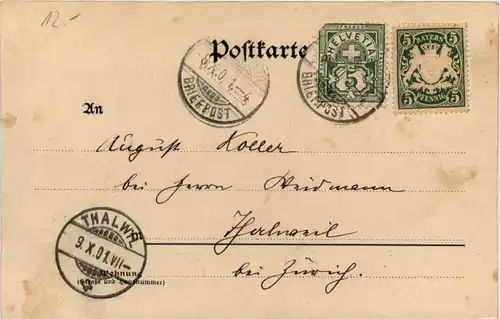 12.-
Postkarte
HELVETIA
5
BAYERN
5 5
PFENNIG
9.X.01.-8
BRIEFPOST
BRIEFPOST
An
August Koller
bei Herrn Weidmann
Thalweil
bei Zürich.
THALWIL
9.X.01.VII-
Wohnung
(Straße und Hausnummer)